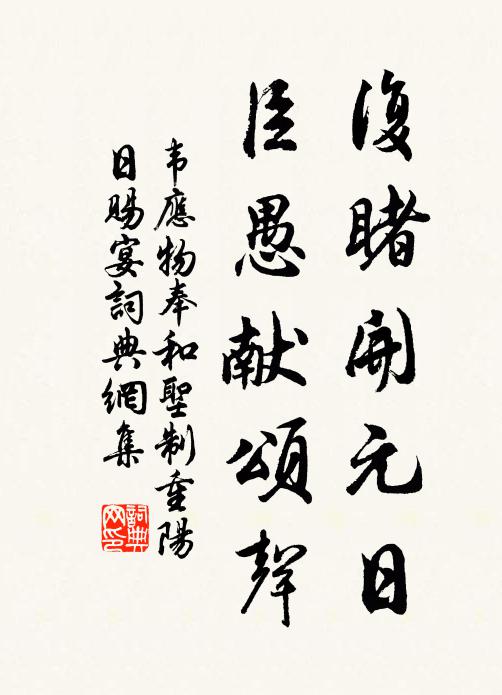 復睹開元日
臣愚献頌聲
韦應物奉和聖制重陽
日賜宴詞典網集
詞典
网印